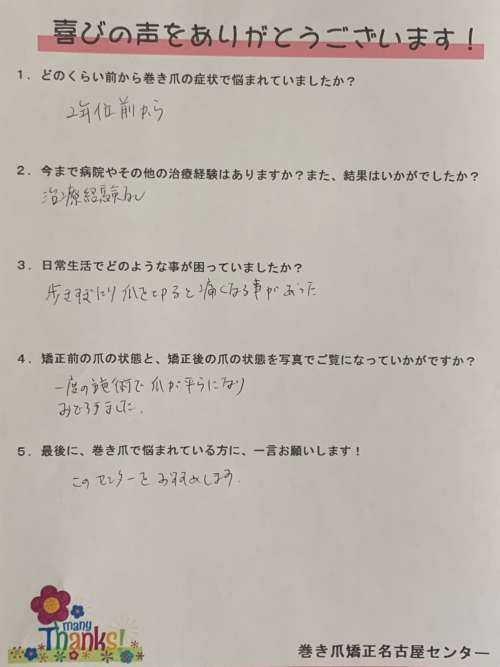 喜びの声をありがとうございます！
１．どのくらい前から巻き爪の症状で悩まれていましたか？
2年位前から
２．今まで病院やその他の治療経験はありますか？また、結果はいかがでしたか？
治療経験なし
３．日常生活でどのような事が困っていましたか？
歩きすぎたり爪を切ると痛くなる事があった
４．矯正前の爪の状態と、矯正後の爪の状態を写真でご覧になっていかがですか？
一度の施術で爪が平らになり
おどろきました。
５．最後に、巻き爪で悩まれている方に、一言お願いします！
このセンターをおすすめします。
many
Thanks!
巻き爪矯正名古屋センター